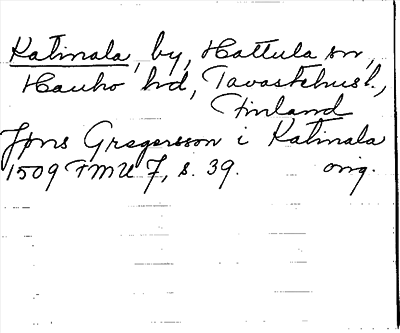 Katinala, by, Hattula sn,
Hauho hd, Tavastehusl.,
Finland
Jöns Gregersson i Katinala
1509 FMU 7, s. 39. orig.